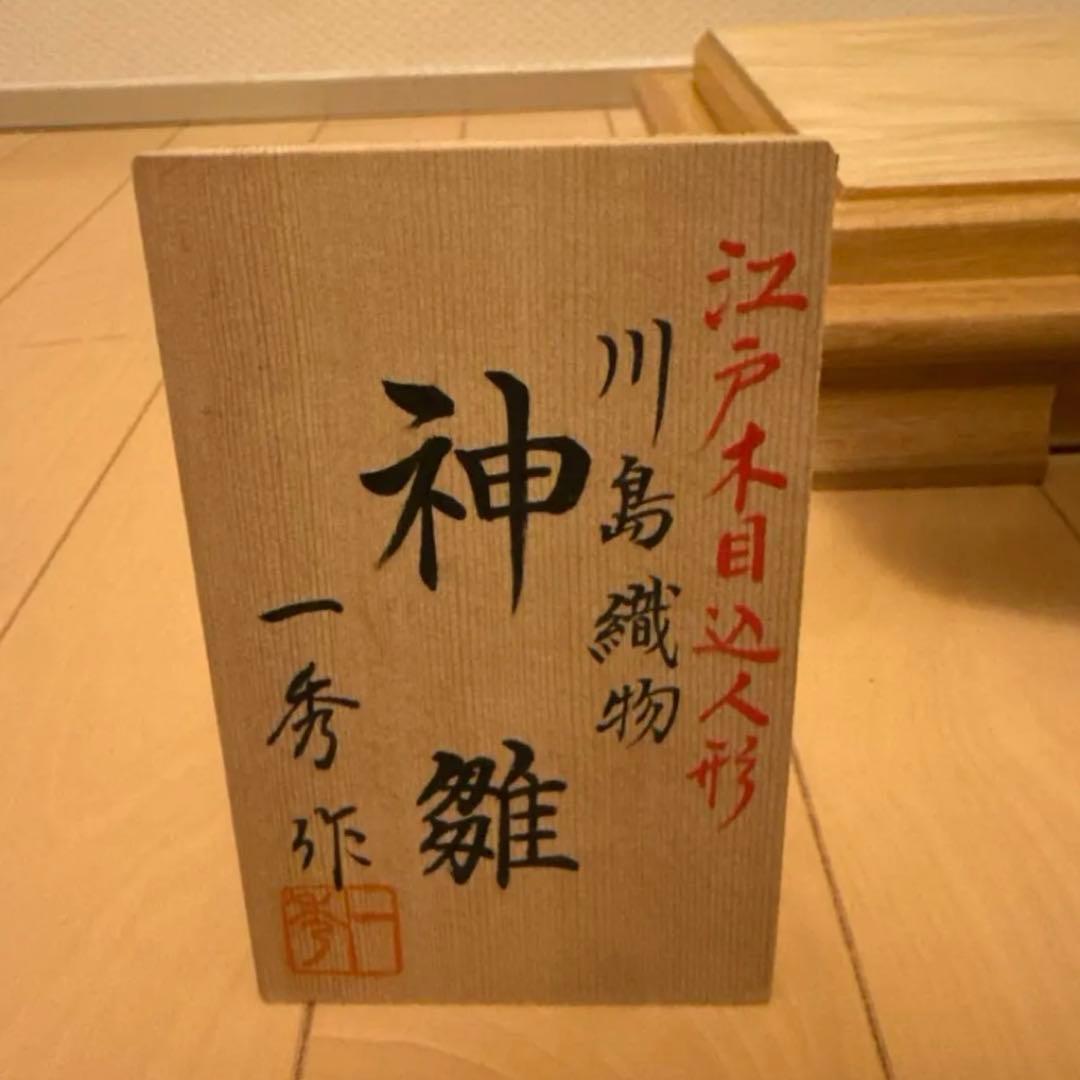 江戸木目込人形
川島織物
神雛
一秀作
一秀